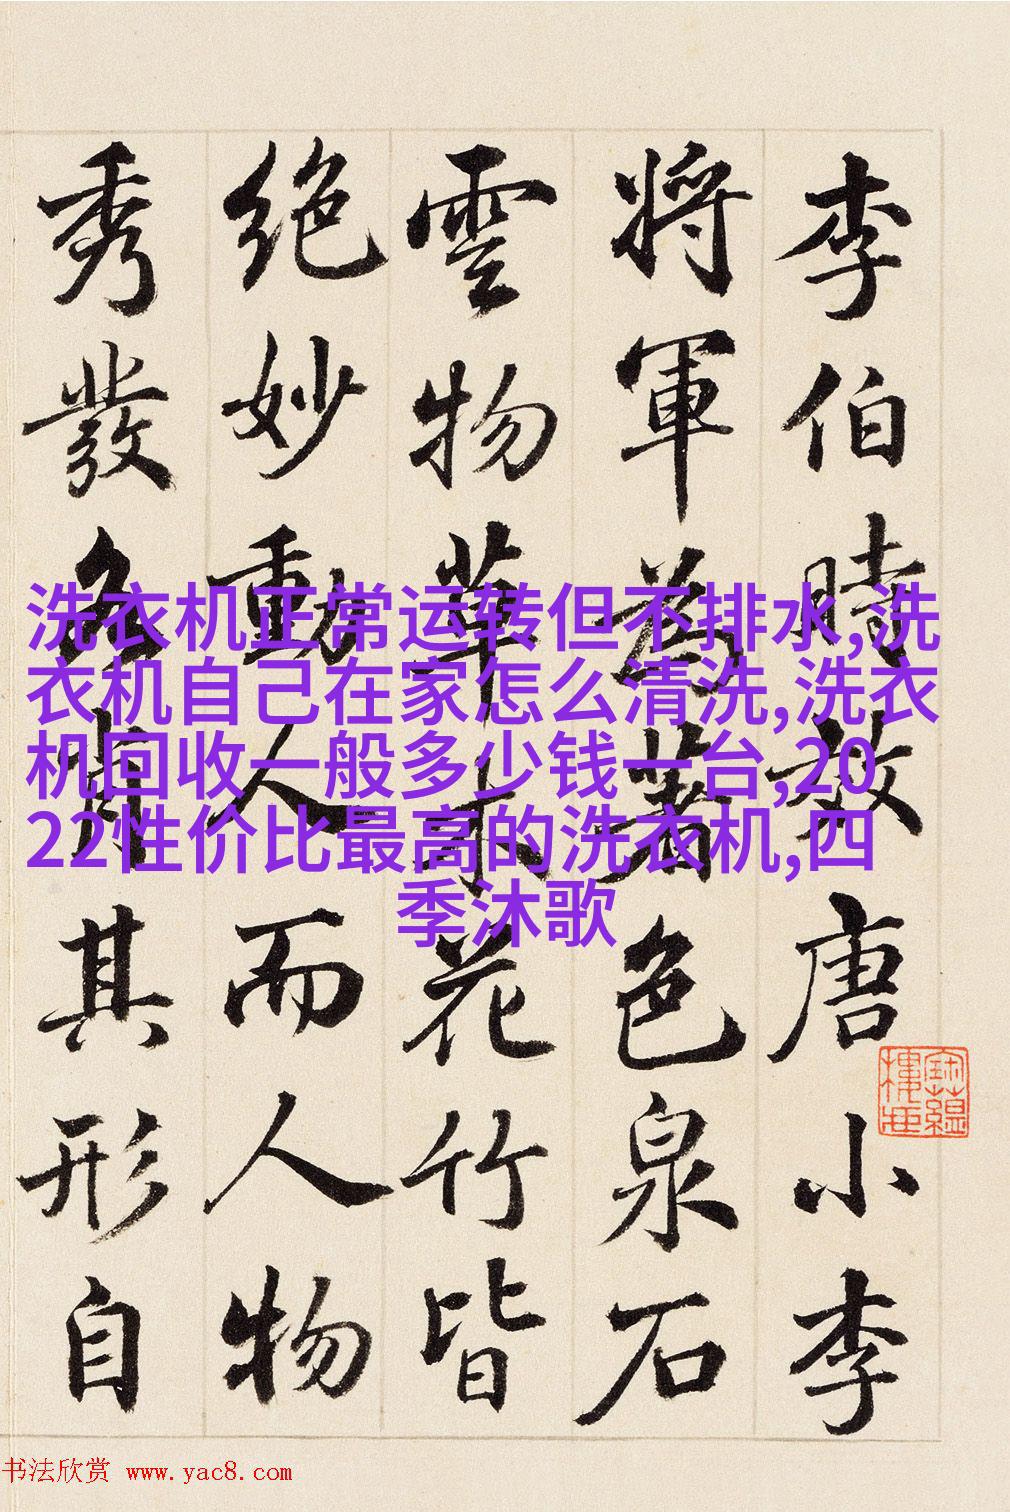 李伯時效唐小李
將軍為著色泉石
雲物草木花竹皆
絶妙動人而人物
秀發各肖其形自
洗衣机正常运转但不排水,洗
衣机自己在家怎么清洗,洗衣
机回收一般多少钱一台,20
22性价比最高的洗衣机,四
季沐歌
书法欣赏 www.yac8.com